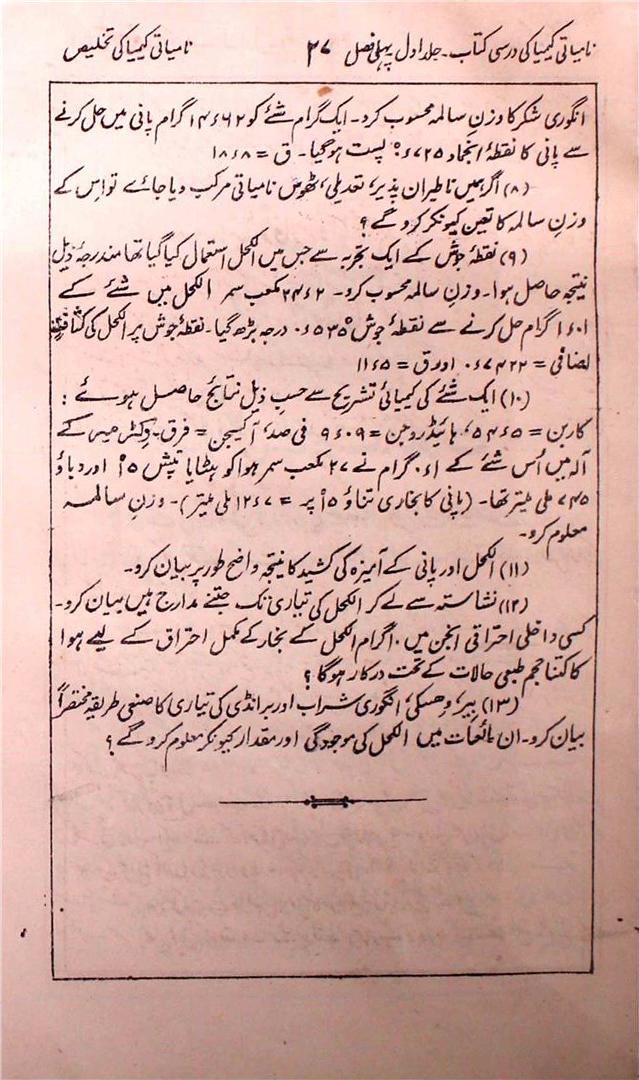 نامیاتی کیمیا کی درسی کتاب۔ جلد اول پہلی فصل ۳۷ نامیاتی کیمیا کی تخلیص
انگوری شکر کا وزنِ سالمہ محسوب کرو۔ ایک گرام شئے کو ۱۴۶۶۲ گرام پانی میں حل کرنے
سے پانی کا نقطۂ انجماد ۰۶۷۲۵° پست ہوگیا۔ ق = ۱۸۶۸
(۸) اگر ہمیں ناطیران پذیر، تعدیلی، ٹھوس نامیاتی مرکب دیا جائے تو اس کے
وزنِ سالمہ کا تعین کیونکر کرو گے؟
(۹) نقطۂ جوش کے ایک تجربہ سے جس میں الکحل استعمال کیا گیا تھا مندرجۂ ذیل
نتیجہ حاصل ہوا۔ وزنِ سالمہ محسوب کرو۔ ۲۴۶۲ مکعب سمر الکحل میں شئے کے
۱۶۰۱ گرام حل کرنے سے نقطۂ جوش ۰۶۵۳۵° درجہ بڑھ گیا۔ نقطۂ جوش پر الکحل کی کثافت
اضافی = ۰۶۷۴۲۲ اور ق = ۱۱۶۵
(۱۰) ایک شئے کی کیمیائی تشریح سے حسبِ ذیل نتائج حاصل ہوئے:
کاربن = ۵۴۶۵، ہائیڈروجن = ۹۶۰۹ فی صد، آکسیجن = فرق۔ وکٹر میر کے
آلہ میں اُس شئے کے ۰۶۱ گرام نے ۲۷ مکعب سمر ہوا کو ہٹایا تپش ۱۵° اور دباؤ
۷۴۵ ملی میتر تھا۔ (پانی کا بخاری تناؤ ۱۵° پر = ۱۲۶۷ ملی میتر)۔ وزنِ سالمہ
معلوم کرو۔
(۱۱) الکحل اور پانی کے آمیزہ کی کشید کا نتیجہ واضح طور پر بیان کرو۔
(۱۲) نشاستہ سے لے کر الکحل کی تیاری تک جتنے مدارج ہیں بیان کرو۔
کسی داخلی احتراقی انجن میں ۱۰ گرام الکحل کے بخار کے مکمل احتراق کے لیے ہوا
کا کتنا حجم طبعی حالات کے تحت درکار ہوگا؟
(۱۳) بیر، وہسکی، انگوری شراب اور برانڈی کی تیاری کا صنعتی طریقہ مختصراً
بیان کرو۔ ان مائعات میں الکحل کی موجودگی اور مقدار کیونکر معلوم کرو گے؟